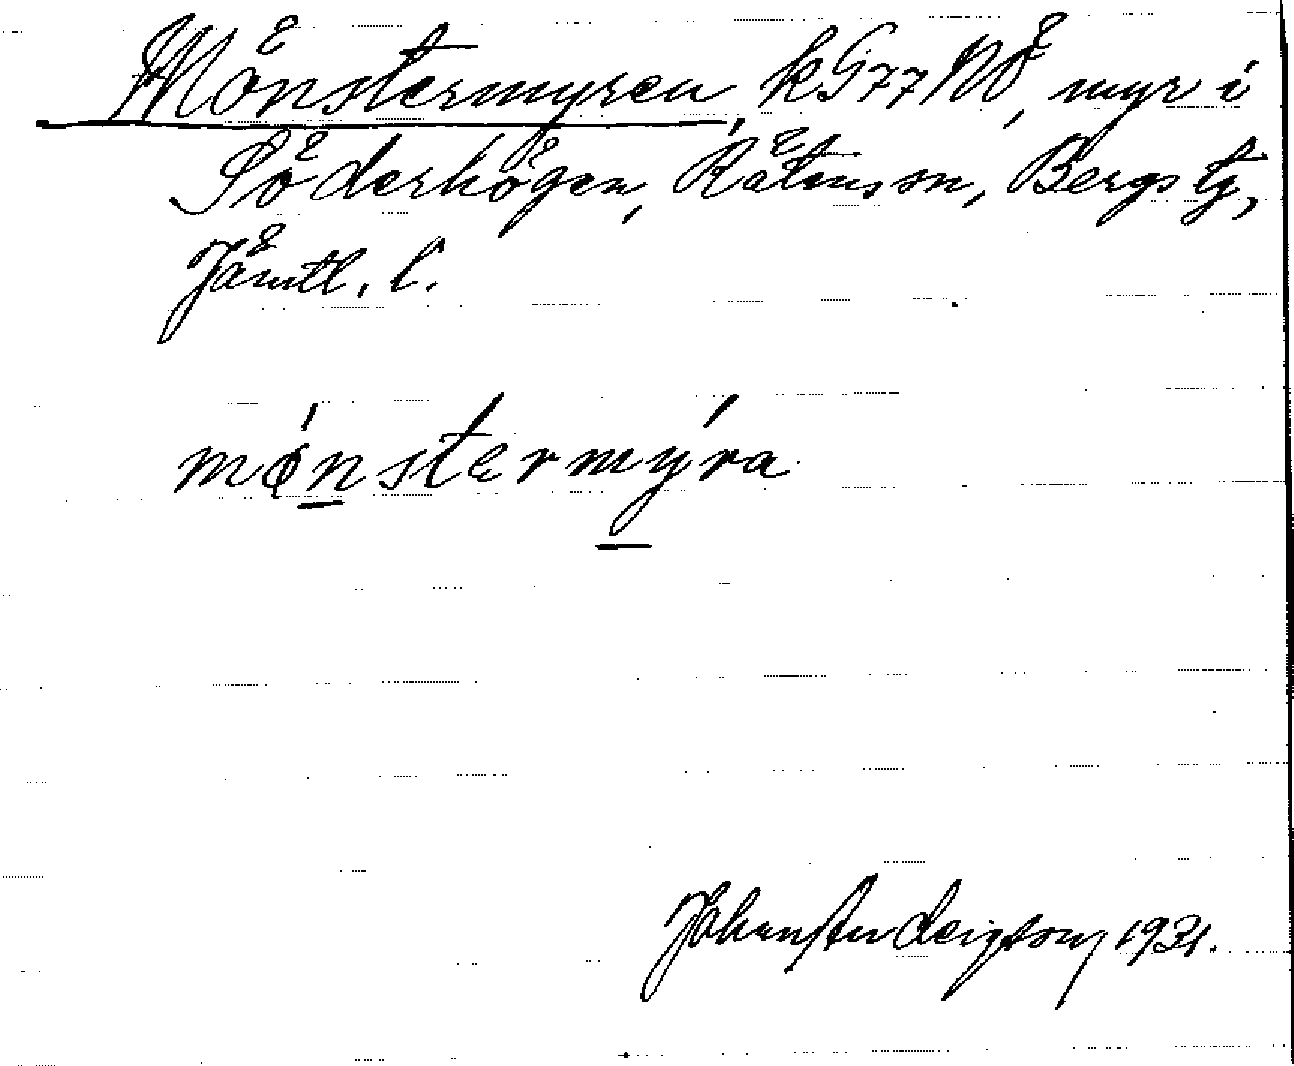 Mönstermyren, kG77NÖ, myr i
Söderhögen, Rätans sn, Bergs tg,
Jämtl. l.
mǿnstermýra
Johan Anderizson, 1931.